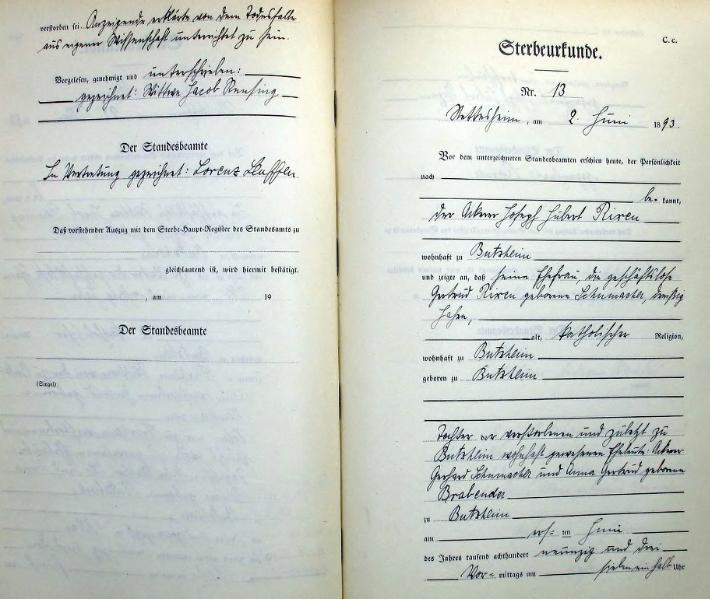 verstorben sei. Anzeigende erklärte von dem Todesfalle
aus eigener Wissenschaft unterrichtet zu sein.
Vorgelesen, genehmigt und unterschrieben:
gezeichnet: Wittwe Jacob Rensing
Der Standesbeamte
In Vertretung gezeichnet: Lorenz
Daß vorstehender Auszug mit dem Sterbe-Haupt-Register des Standesamts zu
gleichlautend ist, wird hiermit bestätigt.
, am 19
Der Standesbeamte
(Siegel)
C. c.
Sterbeurkunde.
Nr. 13
Nettesheim, am 2. Juni 1893.
Vor dem unterzeichneten Standesbeamten erschien heute, der Persönlichkeit
nach
be= kannt,
der Ackerer Joseph Hubert Rixen
wohnhaft zu Butzheim
und zeigte an, daß seine Ehefrau, die geschäftslose
Gertrud Rixen geborene Schumacher, dreißig
Jahre,
alt, katholischer Religion,
wohnhaft zu Butzheim
geboren zu Butzheim
Tochter der verstorbenen und zuletzt zu
Butzheim wohnhaft gewesenen Eheleute: Ackerer
Gerhard Schumacher und Anna Gertrud geborene
Brabender
zu Butzheim
am ersten Juni
des Jahres tausend achthundert neunzig und drei
Vor= mittags um sieben einhalb Uhr